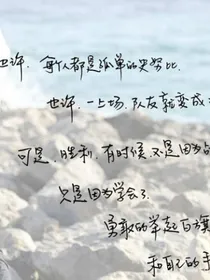 也许，每个人都是孤单的史努比．
也许，一上场，队友就变成
可是，胜利，有时候不是因为
只是因为学会了
勇敢的举起白旗
和自己的